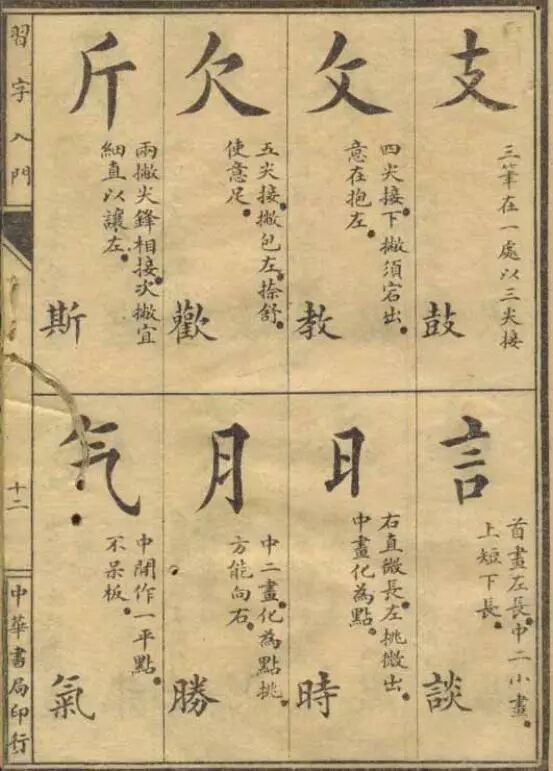 支
三筆在一處以三尖接
鼓
攵
四尖接。下撇須宕出。
意在抱左。
教
欠
五尖接。撇包左。捺舒。
使意足。
歡
斤
兩撇尖鋒相接。次撇宜
細直以讓左。
斯
言
首畫左長。中二小畫。
上短下長。
談
日
右直微長。左挑微出。
中畫化為點。
時
月
中二畫。化為點挑。
方能向右。
勝
气
中開作一平點。
不呆板。
氣
習字入門
十二
中華書局印行